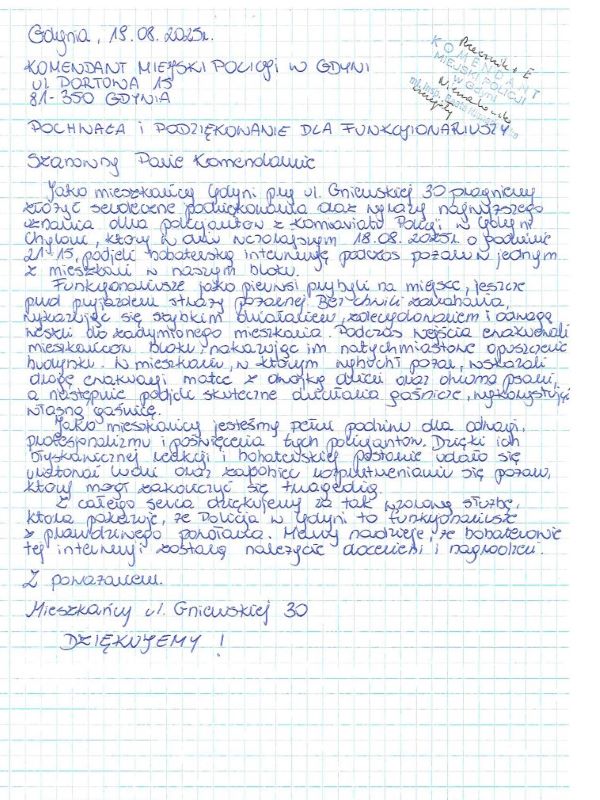 Gdynia, 19.08.2025r.
KOMENDANT
MIEJSKI POLICJI
w Gdyni
KOMENDANT MIEJSKI POLICJI W GDYNI
ul PORTOWA 15
81-350 GDYNIA
POCHWAŁA I PODZIĘKOWANIE DLA FUNKCJONARIUSZY
Szanowny Panie Komendancie
Jako mieszkańcy Gdyni przy ul. Gniewskiej 30 pragniemy
złożyć serdeczne podziękowania oraz wyrazy najwyższego
uznania dwa policjantów z Komisariatu Policji w Gdyni
Chyloni, którzy w dniu wczorajszym 18.08.2025r. o godzinie
21-15, podjęli bohaterską interwencję podczas pożaru w jednym
z mieszkań w naszym bloku.
Funkcjonariusze jako pierwsi przybyli na miejsce, jeszcze
przed przyjazdem straży pożarnej. Bez chwili zawahania,
wykazując się szybkim działaniem, zdecydowaniem i odwagą
weszli do zadymionego mieszkania. Podczas wejścia ewakuowali
mieszkańców bloku, nakazując im natychmiastowe opuszczenie
budynku. W mieszkaniu, w którym wybuchł pożar, wskazali
drogę ewakuacji matce z dwójką dzieci oraz dwoma psami,
a następnie podjęli skuteczne działania gaśnicze, wykorzystując
własną gaśnicę.
Jako mieszkańcy jesteśmy pełni podziwu dla odwagi,
profesjonalizmu i poświęcenia tych policjantów. Dzięki ich
błyskawicznej reakcji i bohaterskiej postawie udało się
uratować ludzi oraz zapobiec rozprzestrzenianiu się pożaru,
który mógł zakończyć się tragedią.
Z całego serca dziękujemy za tak wzorową służbę,
która pokazuje, że Policja w Gdyni to funkcjonariusze
z prawdziwego powołania. Mamy nadzieję, że bohaterowie
tej interwencji zostaną należycie docenieni i nagrodzeni.
Z poważaniem.
Mieszkańcy ul. Gniewskiej 30
DZIĘKUJEMY !